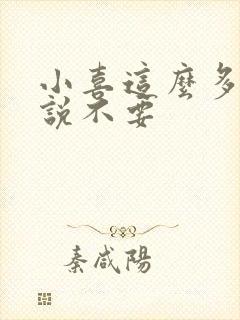 小喜這麼多
說不要
秦咸陽